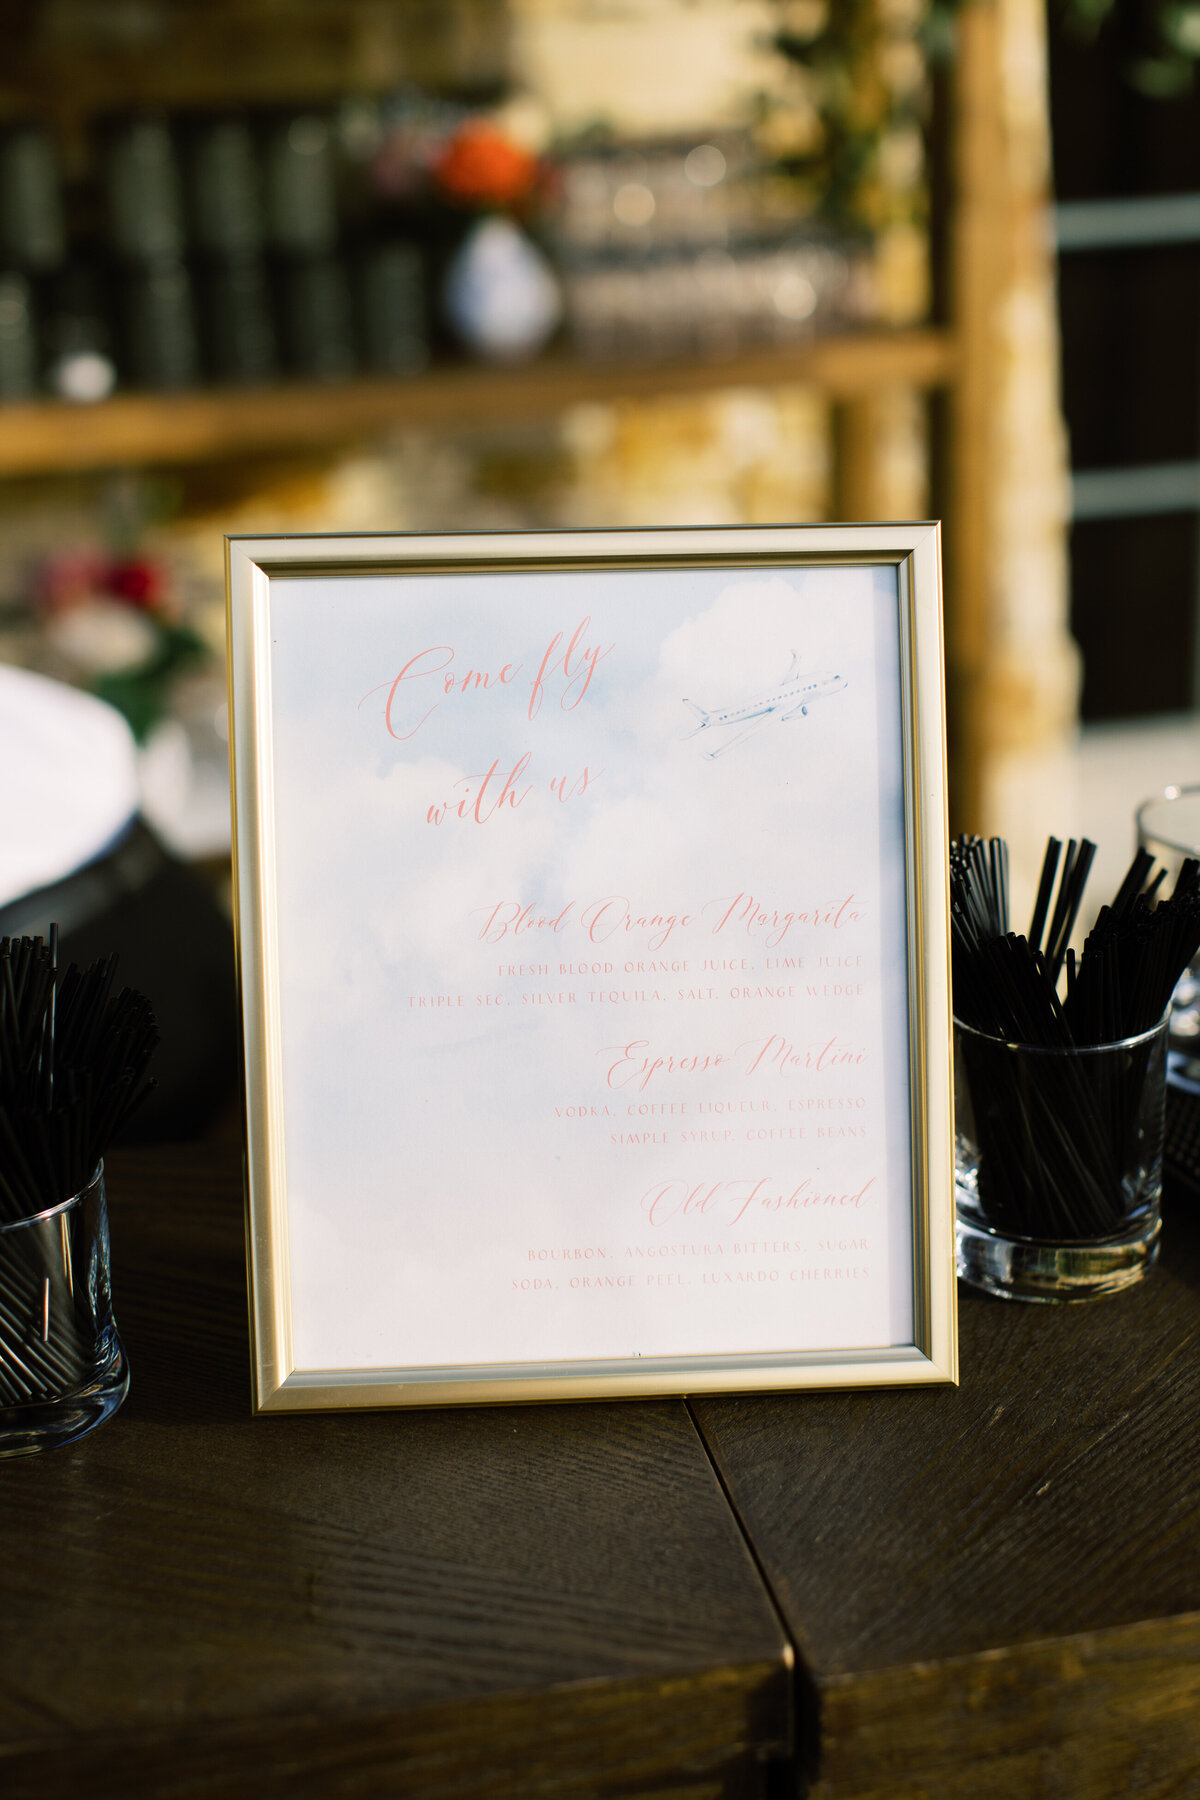 Come fly
with us
Blood Orange Margarita
FRESH BLOOD ORANGE JUICE, LIME JUICE
TRIPLE SEC, SILVER TEQUILA, SALT, ORANGE WEDGE
Espresso Martini
VODKA, COFFEE LIQUEUR, ESPRESSO
SIMPLE SYRUP, COFFEE BEANS
Old Fashioned
BOURBON, ANGOSTURA BITTERS, SUGAR
SODA, ORANGE PEEL, LUXARDO CHERRIES